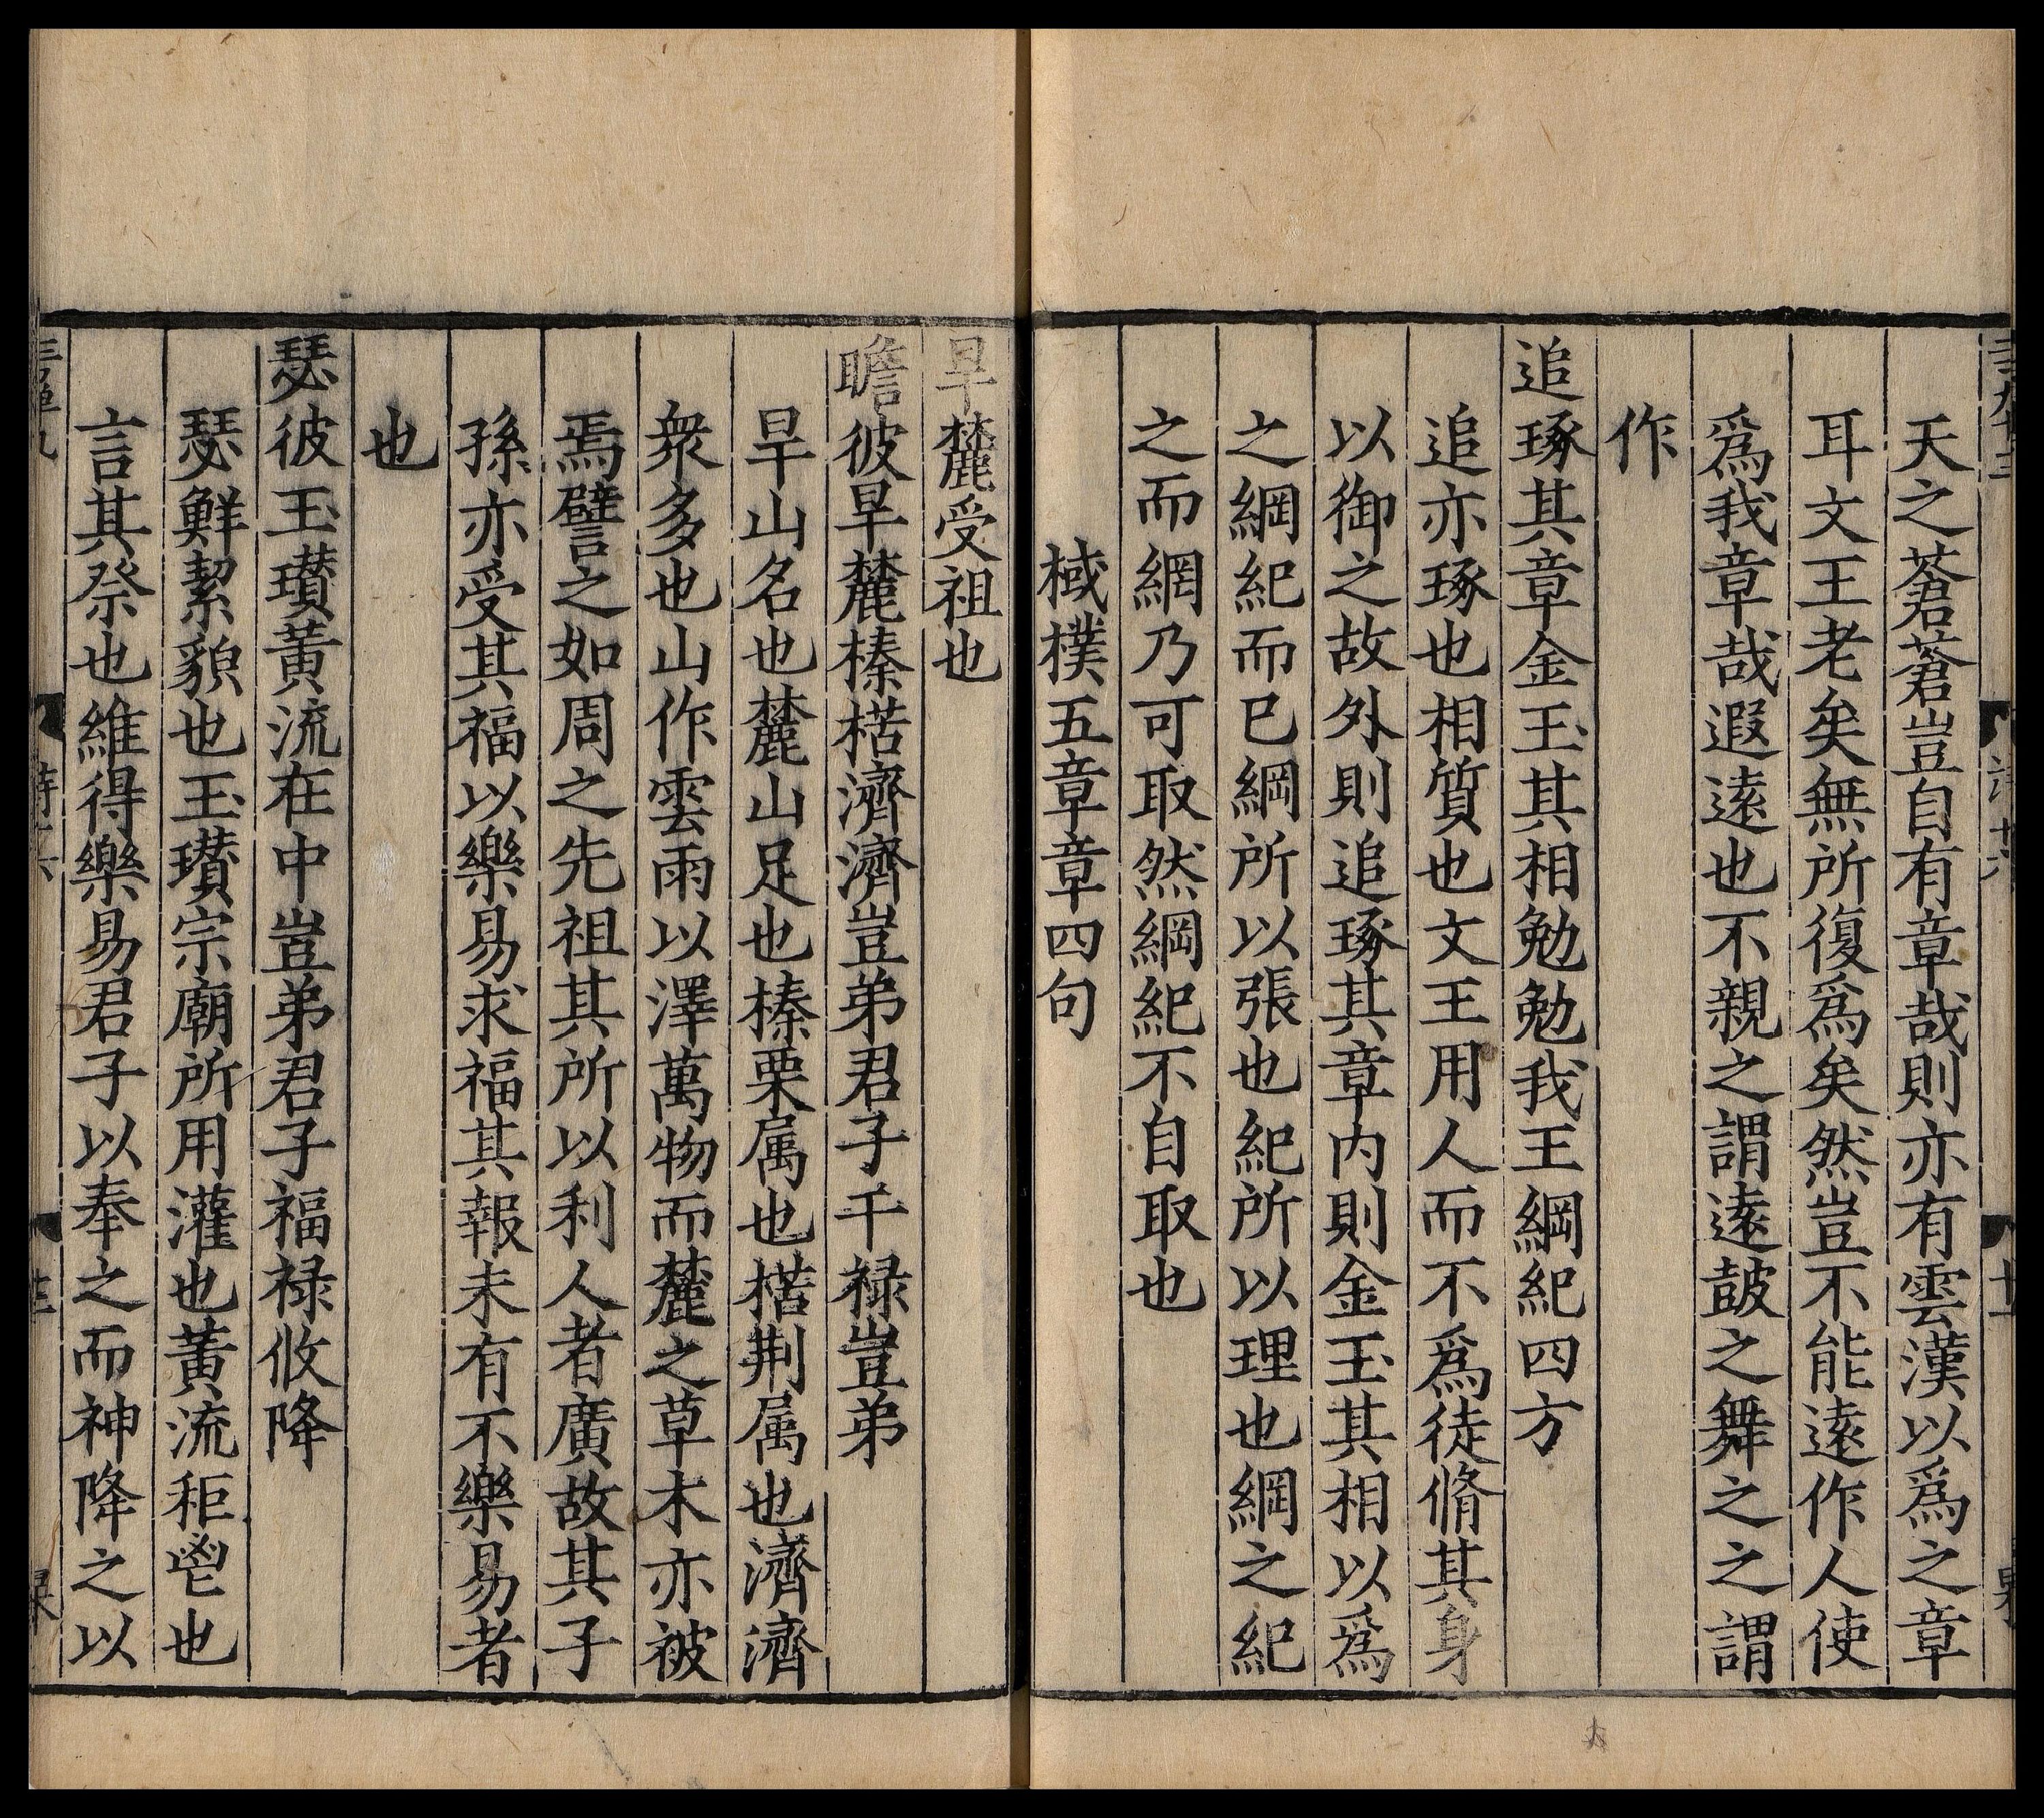 天之蒼蒼豈自有章哉則亦有雲漢以爲之章
耳文王老矣無所復爲矣然豈不能遠作人使
爲我章哉遐遠也不親之謂遠鼓之舞之之謂
作
追琢其章金玉其相勉勉我王綱紀四方
追亦琢也相質也文王用人而不爲徒脩其身
以御之故外則追琢其章内則金玉其相以爲
之綱紀而已綱所以張也紀所以理也綱之紀
之而網乃可取然綱紀不自取也
棫樸五章章四句
旱麓受祖也
瞻彼旱麓榛楛濟濟豈弟君子干禄豈弟
旱山名也麓山足也榛栗属也楛荆属也濟濟
衆多也山作雲雨以澤萬物而麓之草木亦被
焉譬之如周之先祖其所以利人者廣故其子
孫亦受其福以樂易求福其報未有不樂易者
也
瑟彼玉瓚黄流在中豈弟君子福禄攸降
瑟鮮絜貌也玉瓚宗廟所用灌也黄流秬鬯也
言其祭也維得樂易君子以奉之而神降之以